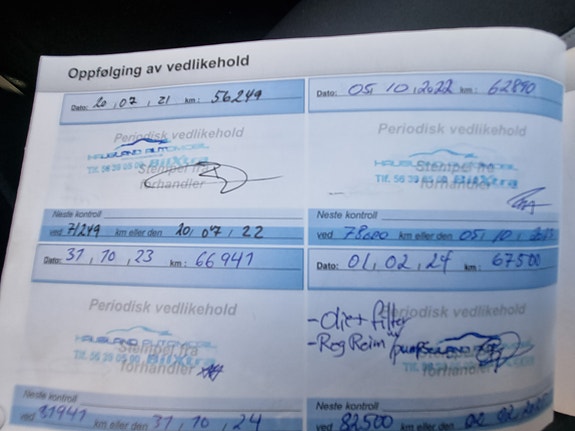 Oppfølging av vedlikehold
Dato: 20, 07, 21 km: 56249
Periodisk vedlikehold
HAUGLAND AUTOMOBIL
Tlf. 56 39 05 00 BilXtra
Stempel fra
forhandler
Neste kontroll
ved 71249 km eller den 20, 07, 22
Dato: 05, 10, 2022 km: 62890
Periodisk vedlikehold
HAUGLAND AUTOMOBIL
Tlf. 56 39 05 00 BilXtra
Stempel fra
forhandler
Neste kontroll
ved 78000 km eller den 05, 10,
Dato: 31, 10, 23 km: 66941
Periodisk vedlikehold
HAUGLAND AUTOMOBIL
Tlf. 56 39 05 00 BilXtra
Stempel fra
forhandler
Neste kontroll
ved 81941 km eller den 31, 10, 24
Dato: 01, 02, 24 km: 67500
Periodisk vedlikehold
- olje + filter
- Reg Reim / pumpe
Tlf. 56 39 05 00 BilXtra
forhandler
Neste kontroll
ved 82500 km eller den 02, 02,